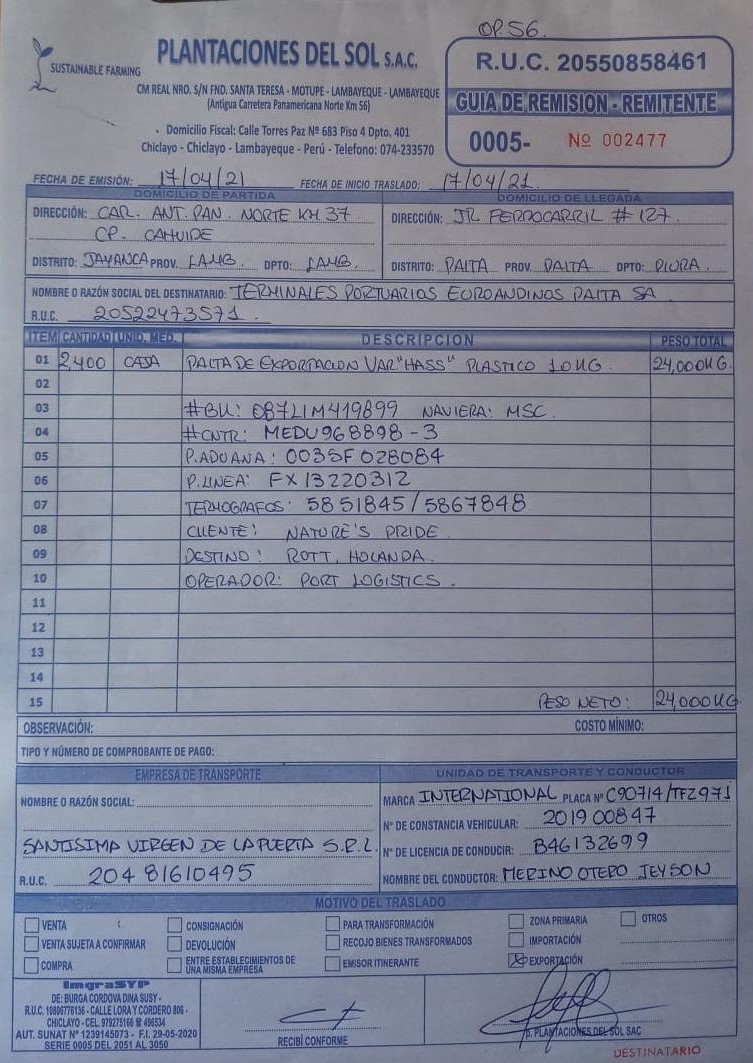 OP. 56.
SUSTAINABLE FARMING
PLANTACIONES DEL SOL S.A.C.
CM REAL NRO. S/N FND. SANTA TERESA - MOTUPE - LAMBAYEQUE - LAMBAYEQUE
(Antigua Carretera Panamericana Norte Km 56)
Domicilio Fiscal: Calle Torres Paz Nº 683 Piso 4 Dpto. 401
Chiclayo - Chiclayo - Lambayeque - Perú - Telefono: 074-233570
R.U.C. 20550858461
GUIA DE REMISION - REMITENTE
0005- Nº 002477
FECHA DE EMISIÓN: 17/04/21 FECHA DE INICIO TRASLADO: 17/04/21.
DOMICILIO DE PARTIDA
DIRECCIÓN: CAR. ANT. PAN. NORTE KM 37
CP. CAHUIDE
DISTRITO: JAYANCA PROV. LAMB. DPTO: LAMB.
DOMICILIO DE LLEGADA
DIRECCIÓN: JR FERROCARRIL # 127.
DISTRITO: PAITA PROV. PAITA DPTO: PIURA.
NOMBRE O RAZÓN SOCIAL DEL DESTINATARIO: TERMINALES PORTUARIOS EUROANDINOS PAITA SA
R.U.C. 20522473571.
ITEM CANTIDAD UNID. MED. DESCRIPCION PESO TOTAL
01 2,400 CAJA PALTA DE EXPORTACION VAR "HASS" PLASTICO 10KG. 24,000KG.
02
03 #BK: 087LIM419899 NAVIERA: MSC.
04 #CNTR: MEDU968898-3
05 P.ADUANA: 0035F028084
06 P.LINEA: FX13220312
07 TERMOGRAFOS: 5851845/5867848
08 CLIENTE: NATURE'S PRIDE
09 DESTINO: ROTT, HOLANDA.
10 OPERADOR: PORT LOGISTICS.
11
12
13
14
15 PESO NETO: 24,000KG
OBSERVACIÓN: COSTO MÍNIMO:
TIPO Y NÚMERO DE COMPROBANTE DE PAGO:
EMPRESA DE TRANSPORTE
NOMBRE O RAZÓN SOCIAL:
SANTISIMA VIRGEN DE LA PUERTA S.R.L.
R.U.C. 20481610495
UNIDAD DE TRANSPORTE Y CONDUCTOR
MARCA INTERNATIONAL PLACA Nº C90714/TFZ971
Nº DE CONSTANCIA VEHICULAR: 201900847
Nº DE LICENCIA DE CONDUCIR: B46132699
NOMBRE DEL CONDUCTOR: MERINO OTERO JEYSON
MOTIVO DEL TRASLADO
VENTA CONSIGNACIÓN PARA TRANSFORMACIÓN ZONA PRIMARIA OTROS
VENTA SUJETA A CONFIRMAR DEVOLUCIÓN RECOJO BIENES TRANSFORMADOS IMPORTACIÓN
COMPRA ENTRE ESTABLECIMIENTOS DE EMISOR ITINERANTE EXPORTACIÓN
UNA MISMA EMPRESA
ImgraSYP
DE: BURGA CORDOVA DINA SUSY -
R.U.C. 10806776136 - CALLE LORA Y CORDERO 806 -
CHICLAYO - CEL. 979275166 ☎ 496534
AUT. SUNAT Nº 1239145073 - F.I. 29-05-2020
SERIE 0005 DEL 2051 AL 3050
RECIBÍ CONFORME
p. PLANTACIONES DEL SOL SAC
DESTINATARIO